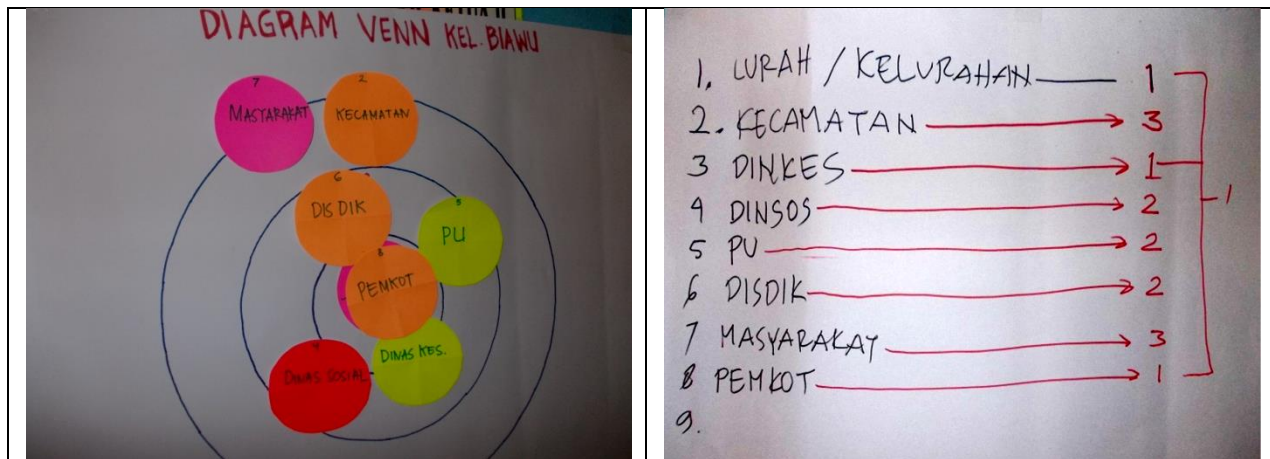 DIAGRAM VENN KEL. BIAWU
7
MASYARAKAT
2
KECAMATAN
6
DISDIK
5
PU
8
PEMKOT
DINAS KES.
DINAS SOSIAL
1. LURAH / KELURAHAN 1
2. KECAMATAN 3
3 DINKES 1
4 DINSOS 2
5 PU 2
6 DISDIK 2
7 MASYARAKAT 3
8 PEMKOT 1
9.
1